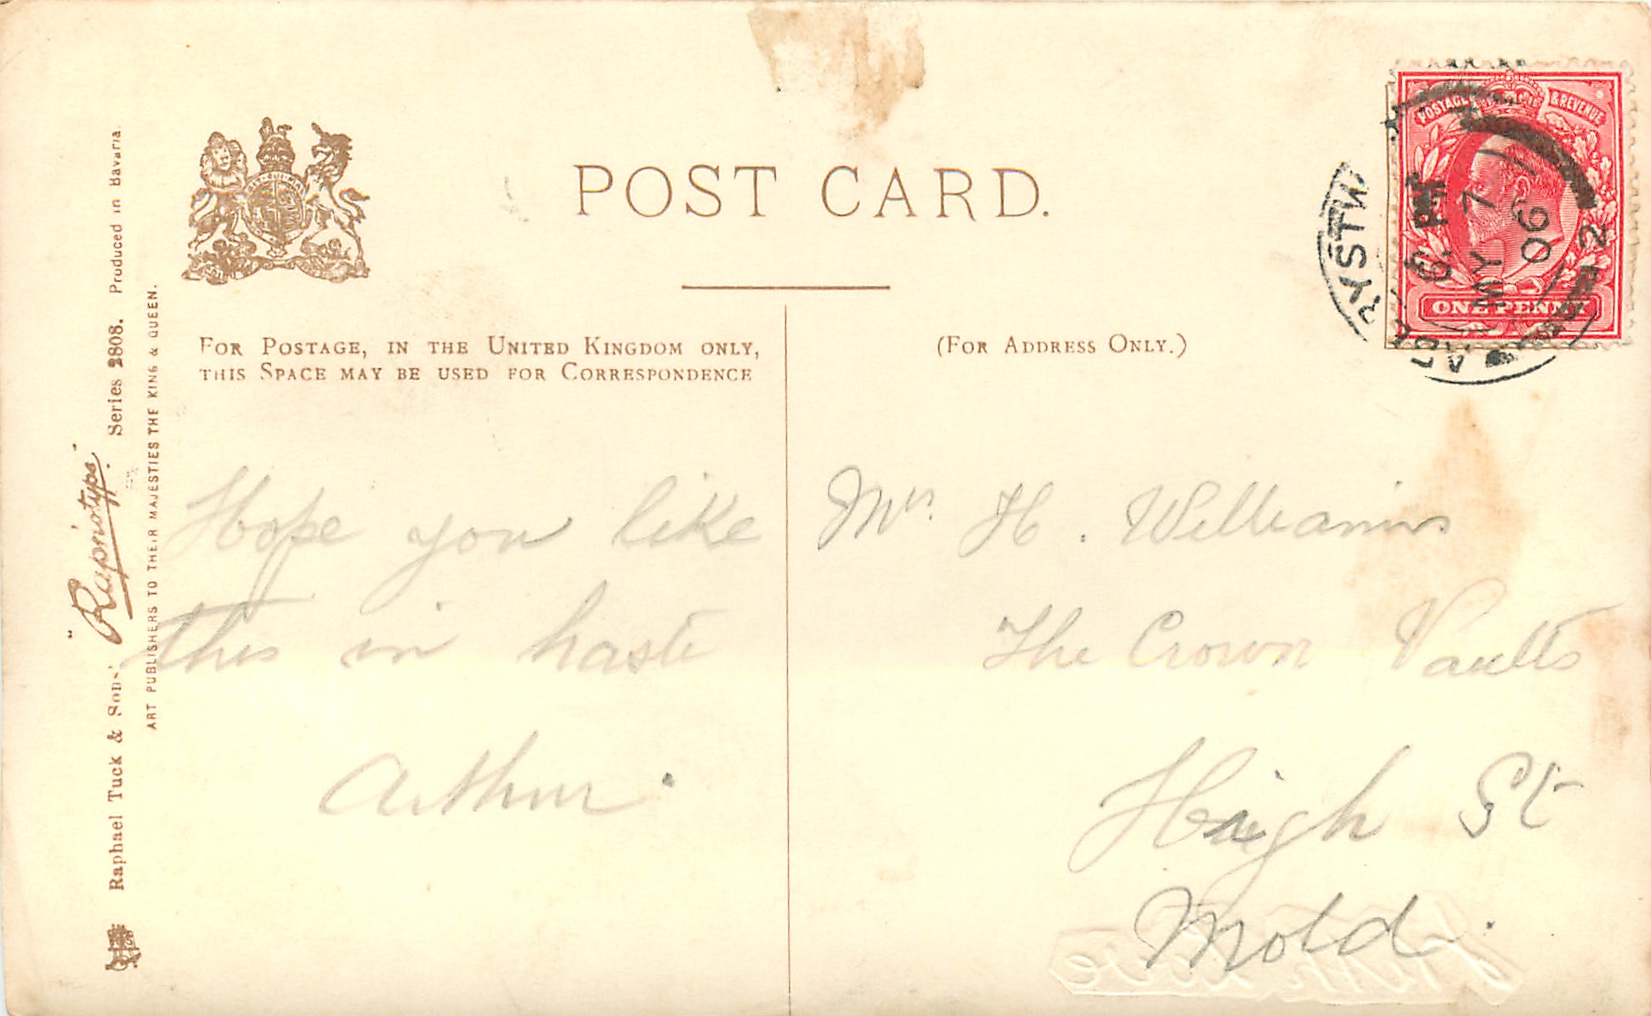 POST CARD.
FOR POSTAGE, IN THE UNITED KINGDOM ONLY,
THIS SPACE MAY BE USED FOR CORRESPONDENCE
(FOR ADDRESS ONLY.)
POSTAGE & REVENUE
ONE PENNY
ABERYSTW
6. PM
MY 7
06
2
Hope you like
this in haste
Arthur.
Mrs. H. Williams
The Crown Vaults
High St
Mold.
Raphael Tuck & Sons' "Rapnotype" Series 2808. Produced in Bavaria.
ART PUBLISHERS TO THEIR MAJESTIES THE KING & QUEEN.